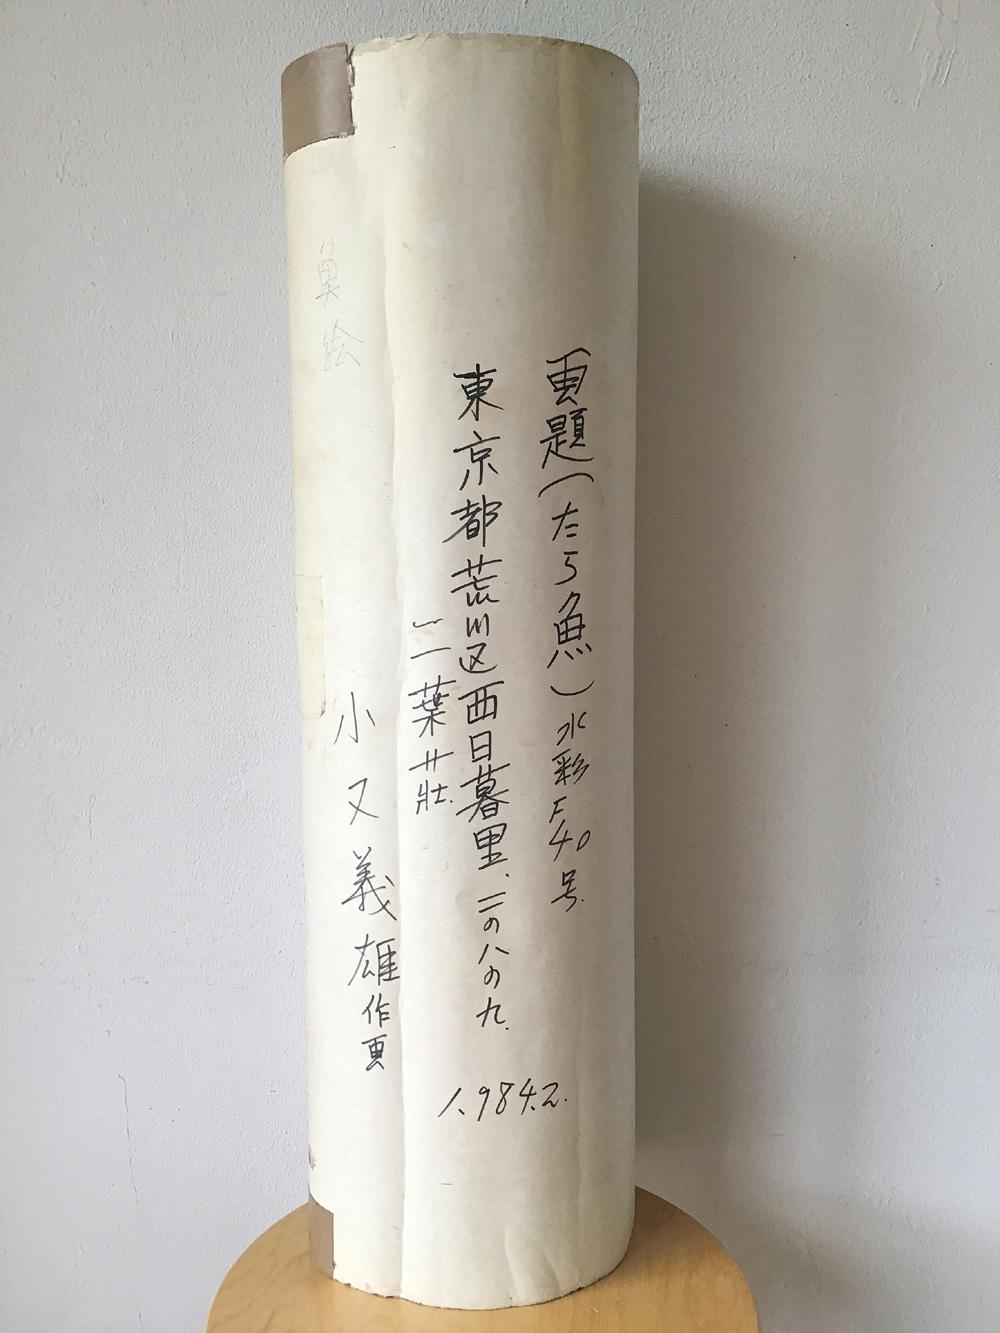 画題(たら魚)水彩F40号.
東京都荒川区西日暮里、二の八の九.
二葉荘.
小又義雄作画
1.984.2.
鼻絵